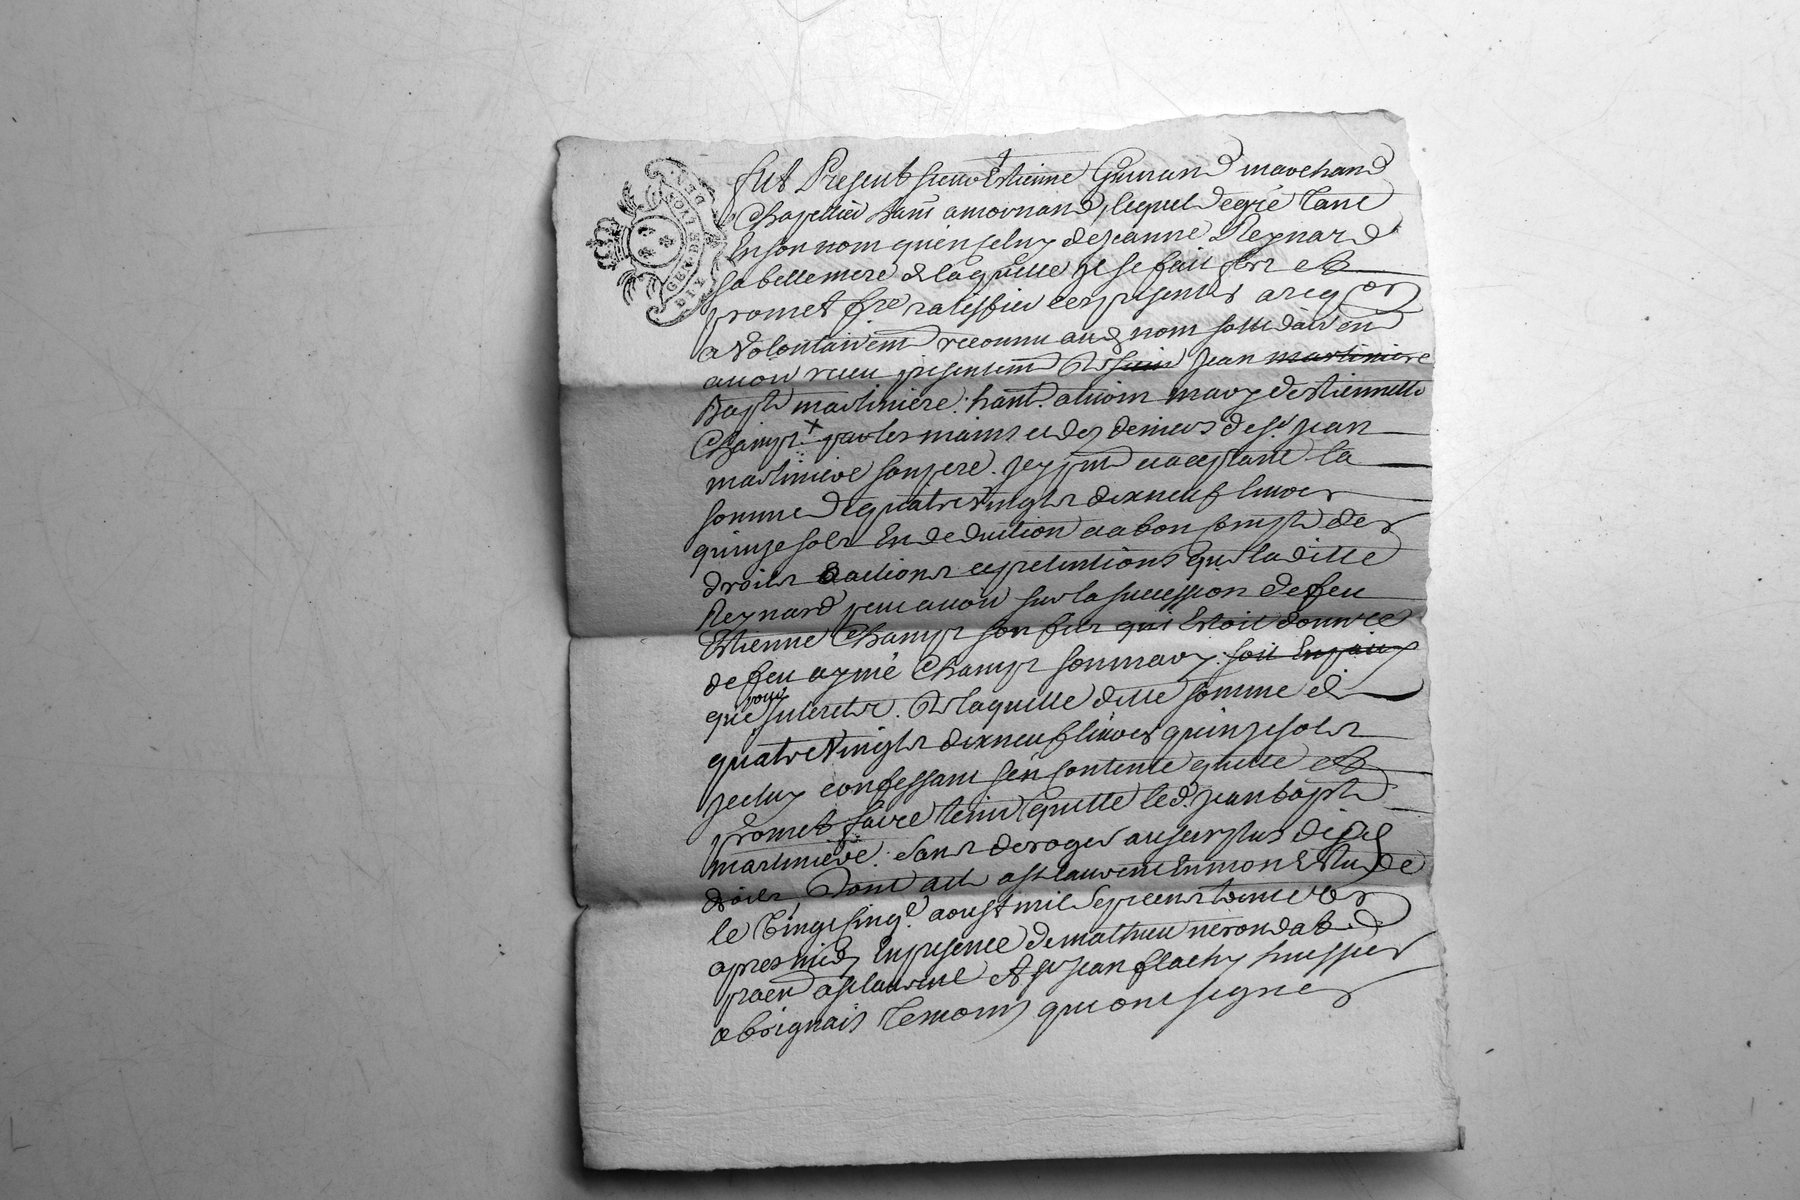 GEN. DE LION
DIX DEN.
fut Present sieur Estienne Guinand marchand
Chapellier hant a mornand, lequel de gré tant
En son nom qu'en seluy de Jeanne Reynard
sa bellemere de laquelle Il se fait fort et
promet fre ratiffier ces presentes a req
a Volontairemt reconnu aud nom sollidairemt
avoir receu presentemt de sieur Jean martiniere
Bapt martiniere hant. a mary d'estiennette
Champ X par les mains et des deniers de sr Jean
martiniere son pere Icy pnt et acceptant la
somme de quatre Vingts dix neuf livres
quinze sols En deduction et a bon compte des
droits actions et pretentions que la ditte
Reynard peut avoir sur la succession de feu
Estienne Champ son fils qui Estoit donnre
de feu aymé Champ son mary soit En
que pour Interetz. De laquelle ditte somme de
quatre Vingts dix neuf livres quinze sols
Iceluy confessant s'en contente quitte et
promet faire tenir quitte led. Jean bapt
martiniere. sans deroger au surplus desd
droits, Dont acte a st laurent En mon Estude
le Vingt cinqe aoust mil sept cent
apres midy En presence de mathieu neron
praen a st laurent et sr Jean flachy huissier
a brignais temoins qui ont signes